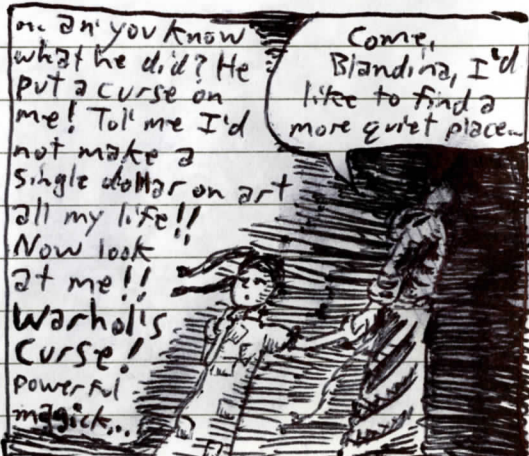 ... an' you know
what he did? He
put a curse on
me! Tol' me I'd
not make a
single dollar on art
all my life!!
Now look
at me!!
Warhol's
Curse!
Powerful
magick...
Come,
Blandina, I'd
like to find a
more quiet place...